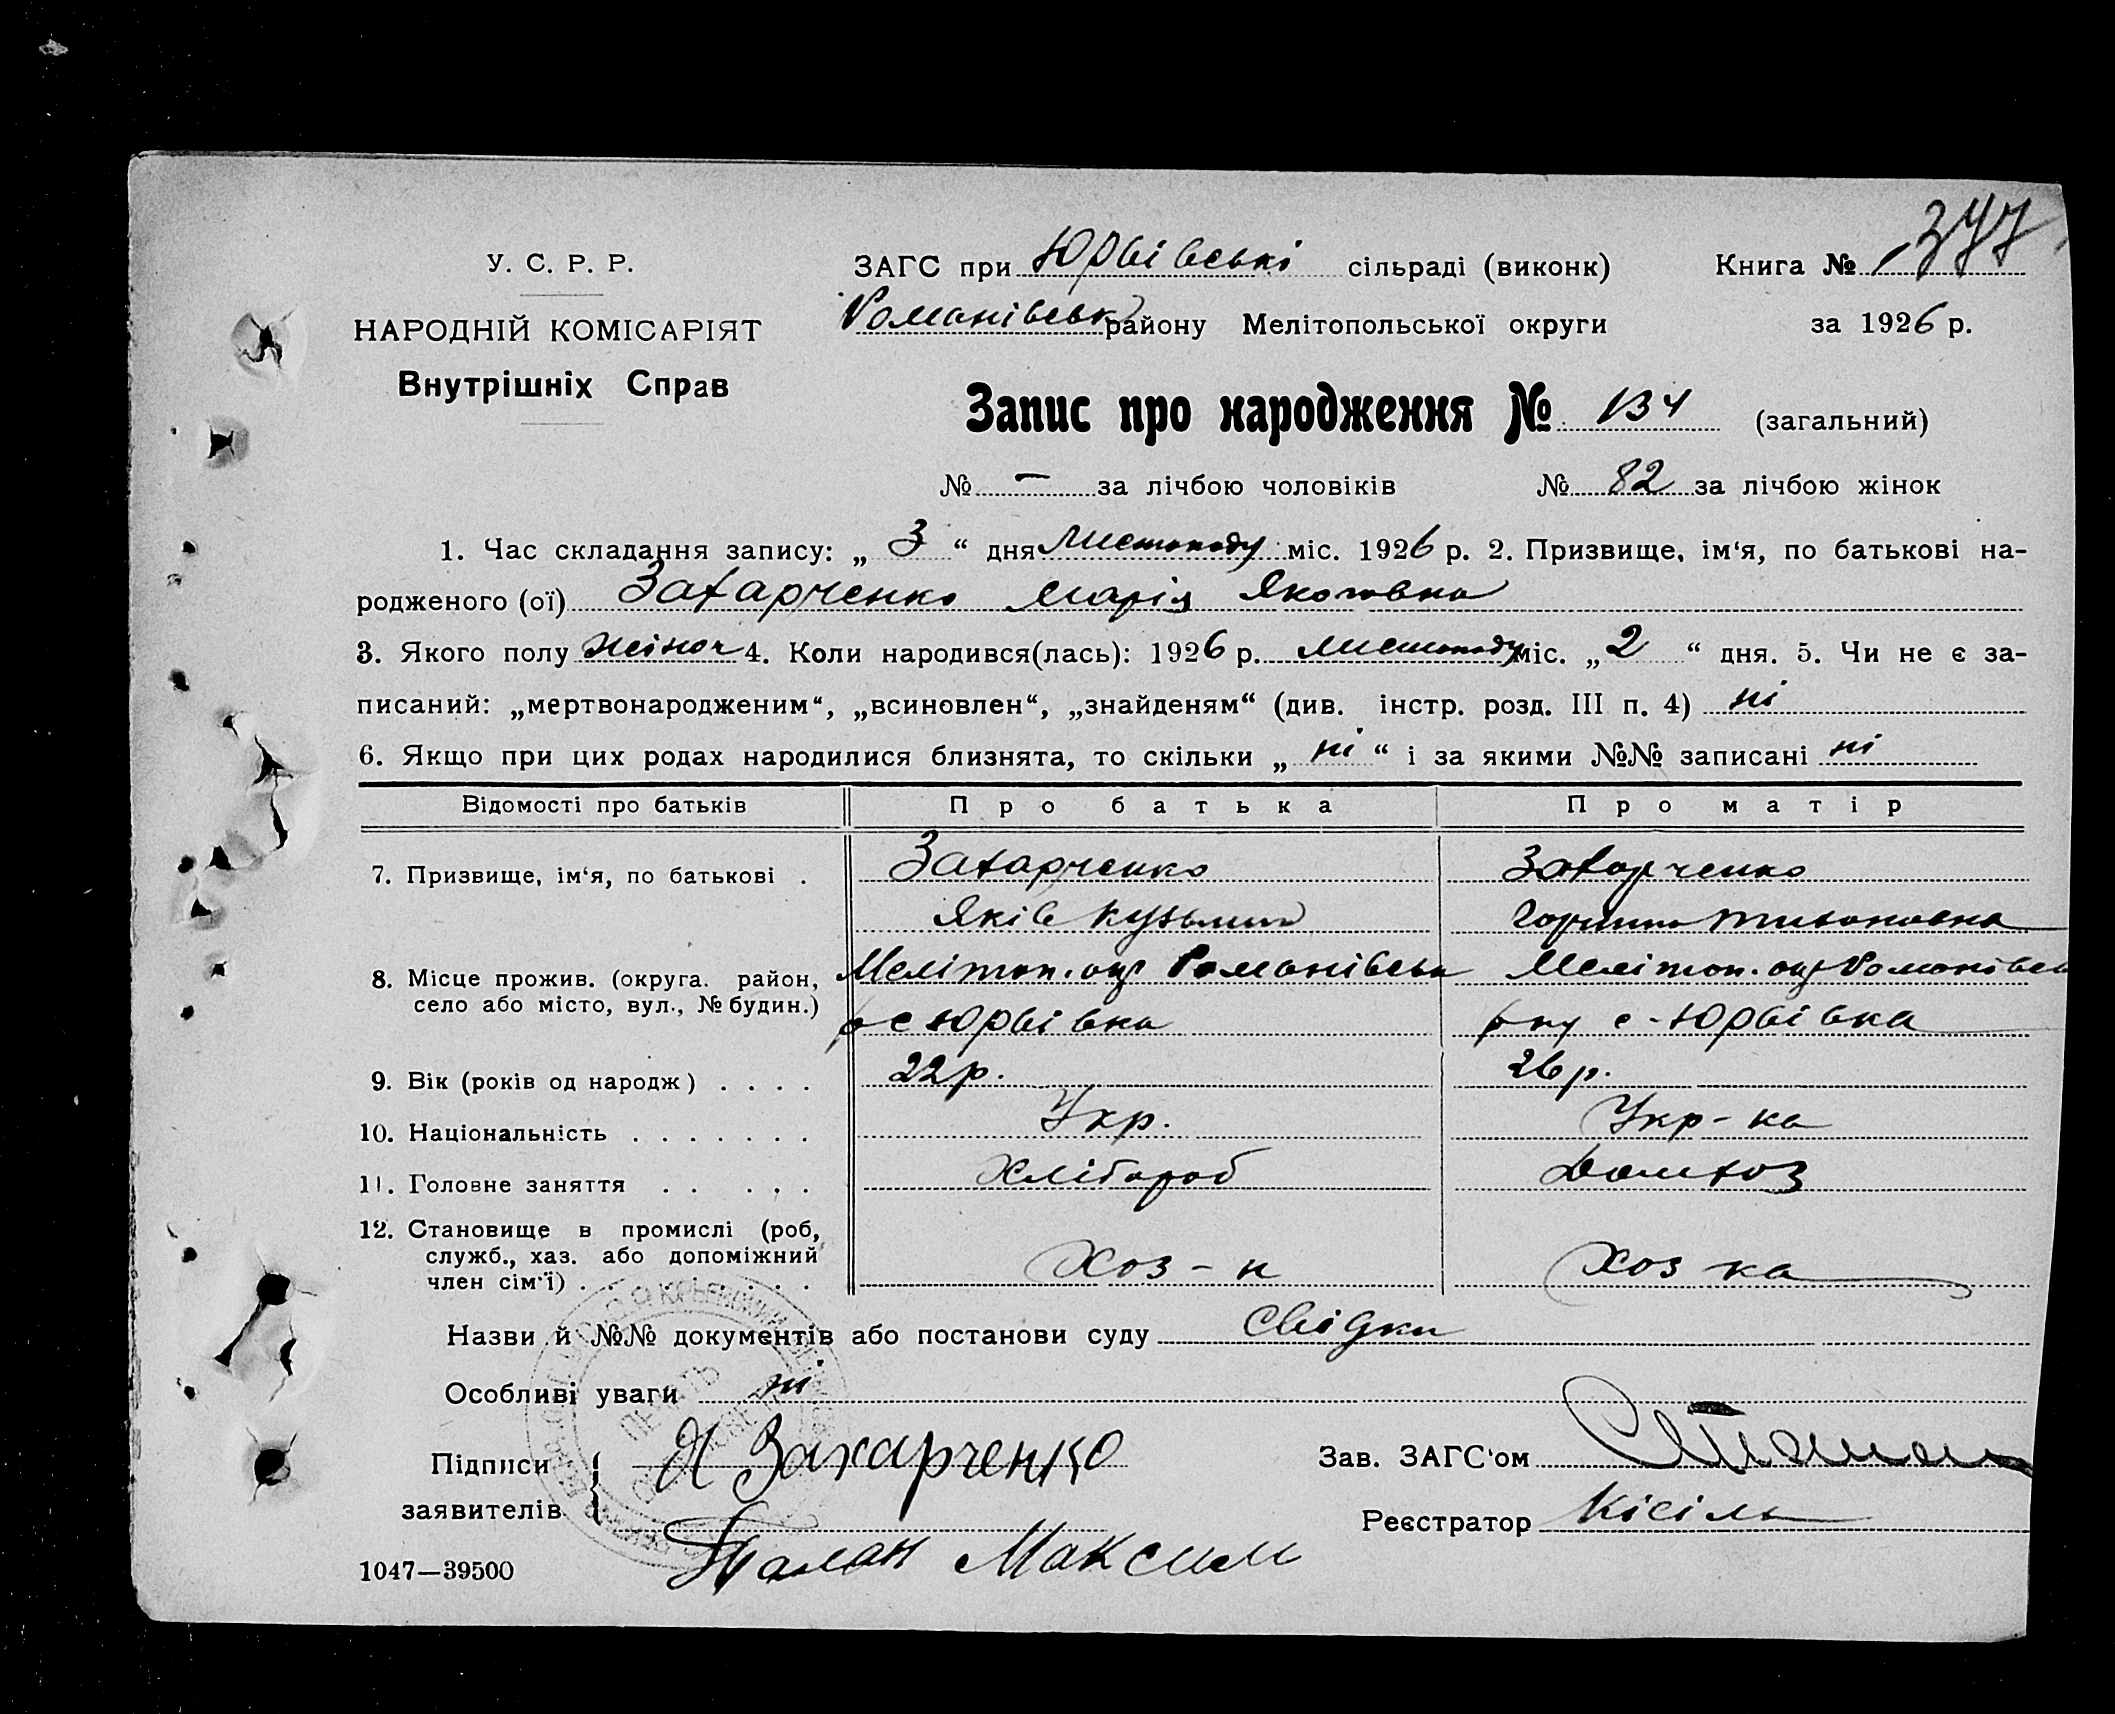 У. С. Р. Р.
НАРОДНІЙ КОМІСАРІЯТ
Внутрішніх Справ
ЗАГС при Юрвівські сільраді (виконк) Книга № 377
Романівськ району Мелітопольської округи за 1926 р.
Запис про народження № 134 (загальний)
№ — за лічбою чоловіків № 82 за лічбою жінок
1. Час складання запису: „ 3 “ дня Листопаду міс. 1926 р. 2. Призвище, ім‘я, по батькові на-
родженого (ої) Захарченко Марія Яковівна
3. Якого полу жіноч 4. Коли народився(лась): 1926 р. листопаду міс. „ 2 “ дня. 5. Чи не є за-
писаний: „мертвонародженим“, „всиновлен“, „знайденям“ (див. інстр. розд. III п. 4) ні
6. Якщо при цих родах народилися близнята, то скільки „ ні “ і за якими №№ записані ні
Відомості про батьків Про батька Про матір
7. Призвище, ім‘я, по батькові . Захарченко Захарченко
Яків Кузьмич Горпина Тихоновна
8. Місце прожив. (округа. район, Мелітоп. окр Романівськ Мелітоп. окр Романівськ
село або місто, вул., № будин.) р с Юрвівка р ну с-Юрвівка
9. Вік (років од народж) . . . . 22р. 26р.
10. Національність . . . . . . . Укр. Укр-ка
11. Головне заняття . . . . . Хлібороб Домхоз
12. Становище в промислі (роб,
служб., хаз. або допоміжний Хоз-н Хоз-ка
член сім‘ї) . . . . . . .
Назви й №№ документів або постанови суду Свідки
Особливі уваги ні
Підписи Я Захарченко Зав. ЗАГС‘ом
заявителів Талан Максим Реєстратор Кісіль
1047—39500